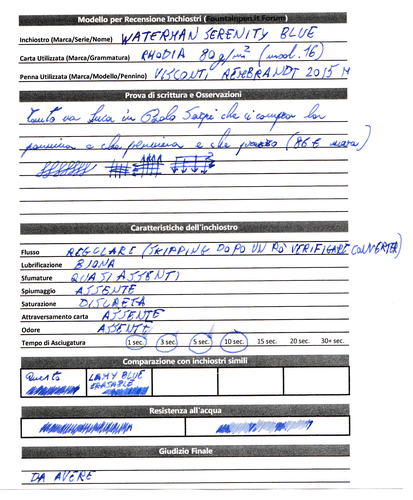 Modello per Recensione Inchiostri (Fountainpen.it Forum)
Inchiostro (Marca/Serie/Nome) WATERMAN SERENITY BLUE
Carta Utilizzata (Marca/Grammatura) RHODIA 80 g/m² (mod. 16)
Penna Utilizzata (Marca/Modello/Pennino) VISCONTI REMBRANDT 2015 M
Prova di scrittura e Osservazioni
Tanto va Luca in Paolo Sarpi che ci compra
pennina e che pennina e che (86 €
Caratteristiche dell'inchiostro
Flusso REGOLARE (SKIPPING DOPO UN PO' VERIFICARE CONVERTER)
Lubrificazione BUONA
Sfumature QUASI ASSENTI
Spiumaggio ASSENTE
Saturazione DISCRETA
Attraversamento carta ASSENTE
Odore ASSENTE
Tempo di Asciugatura 1 sec. 3 sec. 5 sec. 10 sec. 15 sec. 20 sec. 30+ sec.
Comparazione con inchiostri simili
Questo LAMY BLUE
ERASABLE
Resistenza all'acqua
Giudizio Finale
DA AVERE